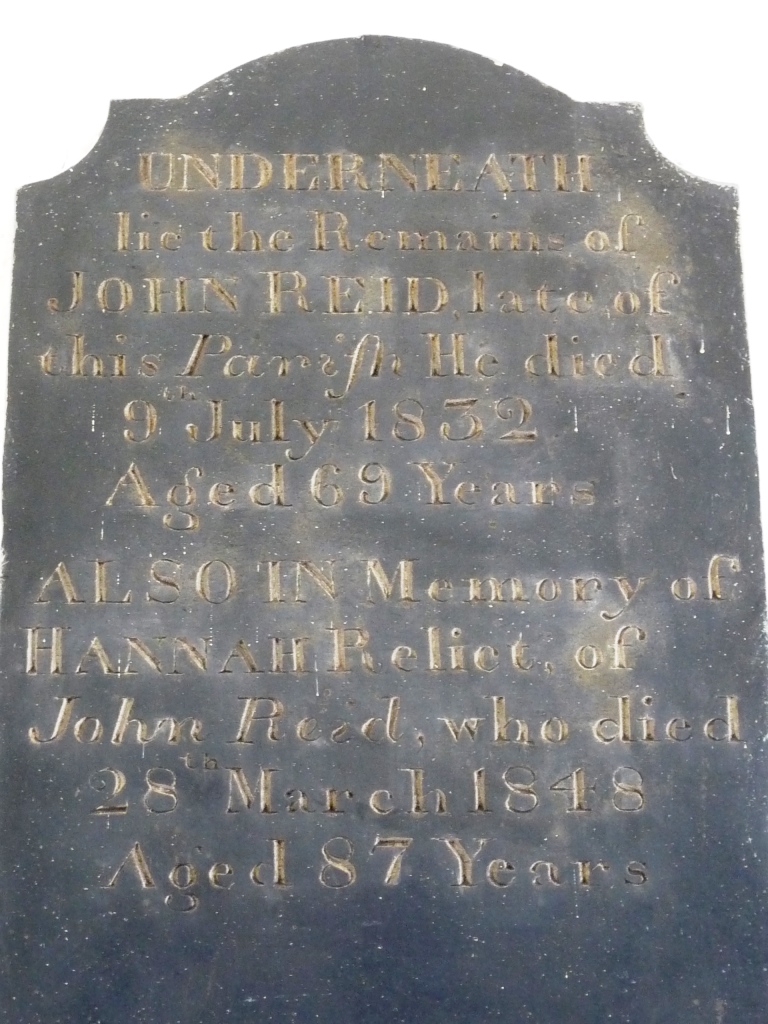 UNDERNEATH
lie the Remains of
JOHN REID, late of
this Pariſh He died
9th July 1832
Aged 69 Years
ALSO IN Memory of
HANNAH Relict, of
John Reid, who died
28th March 1848
Aged 87 Years